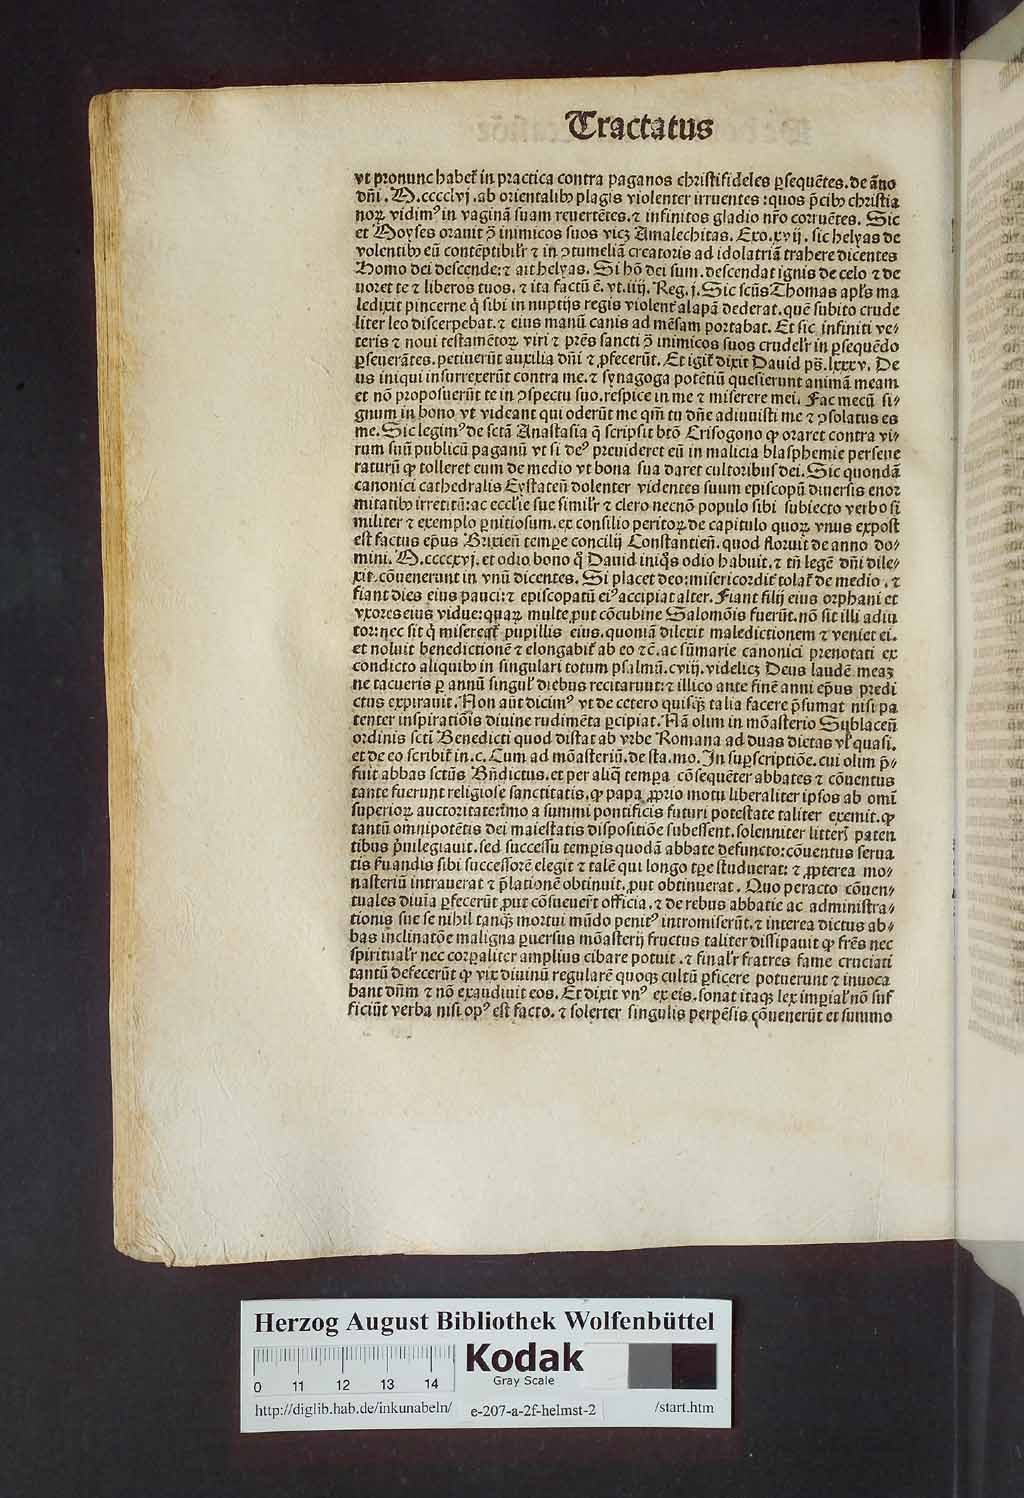 Tractatus
vt pronunc habet̄ in practica contra paganos christifideles ꝑsequētes. de āno
dn̄i. M.cccclvj. ab orientalibꝫ plagis violenter irruentes: quos p̄cibꝫ christia
noꝝ vidimꝰ in vaginā suam reuertētes. ⁊ infinitos gladio nr̄o corruētes. Sic
et Moyses orauit ↄ̄ inimicos suos vicꝫ Amalechitas. Exo.xvij. sic helyas de
volentibꝫ eū contēptibilr̄ ⁊ in ↄtumeliā creatoris ad idolatriā trahere dicentes
Homo dei descende: ⁊ ait helyas. Si hō dei sum. descendat ignis de celo ⁊ de
uoret te ⁊ liberos tuos. ⁊ ita factū ē. vt.iiij. Reg. j. Sic scūs Thomas apl's ma
ledixit pincerne q̇ sibi in nuptijs regis violent' alapā dederat. quē subito crude
liter leo discerpebat. ⁊ eius manū canis ad mēsam portabat. Et sic infiniti ve⸗
teris ⁊ noui testamētoꝝ viri ⁊ prēs sancti ↄ̄ inimicos suos crudelr̄ in ꝑsequēdo
ꝑseuerātes. petiuerūt auxilia dn̄i ⁊ ꝓfecerūt. Et igit̄ dixit Dauid ps̄. lxxxv. De
us iniqui insurrexerūt contra me. ⁊ synagoga potētiū quesierunt animā meam
et nō proposuerūt te in ↄspectu suo. respice in me ⁊ miserere mei. Fac mecū si⸗
gnum in bono vt videant qui oderūt me qm̄ tu dn̄e adiuuisti me ⁊ ↄsolatus es
me. Sic legimꝰ de sctā Anastasia q̄ scripsit btō Crisogono ꝙ oraret contra vi⸗
rum suū publicū paganū vt si deꝰ preuideret eū in malicia blasphemie perseue
raturū ꝙ tolleret eum de medio vt bona sua daret cultoribus dei. Sic quondā
canonici cathedralis Eystateñ dolenter videntes suum episcopū diuersis enor
mitatibꝫ irretitū: ac eccl'ie sue similr̄ ⁊ clero necnō populo sibi subiecto verbo si
militer ⁊ exemplo ꝑnitiosum. ex consilio peritoꝝ de capitulo quoꝝ vnus expost
est factus ep̄us Brixieñ tempe concilij Constantieñ. quod floruit de anno do⸗
mini. M.ccccxvj. et odio bono q̊ Dauid iniq̊s odio habuit. ⁊ tn̄ legē dn̄i dile⸗
xit. cōuenerunt in vnū dicentes. Si placet deo: misericordit̄ tolat̄ de medio. ⁊
fiant dies eius pauci: ⁊ episcopatū eiꝰ accipiat alter. Fiant filij eius orphani et
vxores eius vidue: quaꝝ multe ꝓut cōcubine Salomōis fuerūt. nō sit illi adiu
tor: nec sit q̇ misereat̄ pupillis eius. quoniā dilexit maledictionem ⁊ veniet ei.
et noluit benedictionē ⁊ elongabit̄ ab eo ⁊c̄. ac sūmarie canonici prenotati ex
condicto aliquibꝫ in singulari totum psalmū. cviij. videlicꝫ Deus laudē meaꝫ
ne tacueris ꝑ annū singul' diebus recitarunt: ⁊ illico ante finē anni ep̄us predi
ctus expirauit. Non aūt dicimꝰ vt de cetero quisq̄ꝫ talia facere p̄sumat nisi pa
tenter inspiratiōis diuine rudimēta ꝑcipiat. Nā olim in mōasterio Sublaceñ
ordinis sctī Benedicti quod distat ab vrbe Romana ad duas dietas vl' quasi.
et de eo scribit̄ in.c. Cum ad mōasteriū. de sta. mo. In suꝑscriptiōe. cui olim p̄⸗
fuit abbas sctūs Bn̄dictus. et per aliq̄ tempa cōsequēter abbates ⁊ cōuentus
tante fuerunt religiose sanctitatis. ꝙ papa ꝓprio motu liberaliter ipsos ab omī
superioꝝ auctoritate: īmo a summi pontificis futuri potestate taliter exemit. ꝙ
tantū omnipotētis dei maiestatis dispositiōe subessent. solenniter litter̄ paten
tibus p̄uilegiauit. sed successu temꝑis quodā abbate defuncto: cōuentus serua
tis s̄uandis sibi successorē elegit ⁊ talē qui longo tꝑe studuerat: ⁊ ꝓpterea mo⸗
nasteriū intrauerat ⁊ p̄lationē obtinuit. ꝓut obtinuerat. Quo peracto cōuen⸗
tuales diuīa ꝑfecerūt ꝓut cōsueuer̄t officia. ⁊ de rebus abbatie ac administra⸗
tionis sue se nihil tanq̄ꝫ mortui mūdo penitꝰ intromiserūt. ⁊ interea dictus ab⸗
bas inclinatōe maligna ꝑuersus mōasterij fructus taliter dissipauit ꝙ fr̄es nec
spiritualr̄ nec corꝑaliter amplius cibare potuit. ⁊ finalr̄ fratres fame cruciati
tantū defecerūt ꝙ vix diuinū regularē quoqꝫ cultū ꝑficere potuerunt ⁊ inuoca
bant dn̄m ⁊ nō exaudiuit eos. Et dixit vnꝰ ex eis. sonat itaqꝫ lex imꝑial' nō suf
ficiūt verba nisi opꝰ est facto. ⁊ solerter singulis perpēsis cōuenerūt et summo
Herzog August Bibliothek Wolfenbüttel
0 11 12 13 14
Kodak
Gray Scale
http://diglib.hab.de/inkunabeln/ e-207-a-2f-helmst-2 /start.htm